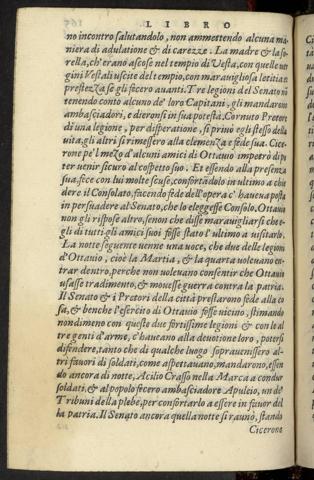 LIBRO
no incontro salutandolo, non ammettendo alcuna ma
niera di adulatione & di carezze. La madre & la so=
rella, ch'erano ascose nel tempio di Vesta, con quelle ver
gini Vestali uscite del tempio, con marauigliosa letitia et
prestezza se gli fecero auanti. Tre legioni del Senato nō
tenendo conto alcuno de' loro Capitani, gli mandarono
ambasciadori, e dieronsi in sua potestà. Cornuto Pretore
di una legione, per disperatione, si priuò egli stesso della
uita. gli altri si rimessero alla clemenza e fede sua. Cice
rone pe'l mezo d'alcuni amici di Ottauio impetrò di po
ter uenir sicuro al cospetto suo. Et essendo alla presenza
sua, fece con lui molte scuse, confortādolo in ultimo a chie
dere il Consolato, facendo fede dell'opera c'haueua posta
in persuadere al Senato, che lo eleggesse Consolo, Ottauio
non gli rispose altro, senon che disse marauigliarsi che e=
gli di tutti gli amici suoi fosse stato l'ultimo a uisitarlo.
La notte seguente uenne una uoce, che due delle legioni
d'Ottauio, cioè la Martia, & la quarta uoleuano en=
trar dentro, perche non uoleuano consentir che Ottauio
usasse tradimento, & mouesse guerra contra la patria.
Il Senato & i Pretori della città prestarono fede alla co
sa, & benche l'esercito di Ottauio fosse uicino, stimando
nondimeno con queste due fortissime legioni & con le al
tre genti d'arme, c'haueano alla deuotione loro, potersi
difendere, tanto che di qualche luogo soprauenissero al=
tri fauori di soldati, come aspettauano, mandarono, essen
do ancora di notte, Acilio Crasso nella Marca a condur
soldati, & al popolo fecero ambasciadore Apulcio, un de'
Tribuni della plebe, per confortarlo a essere in fauor del
la patria. Il Senato ancora quella notte si raunò, stando
Cicerone